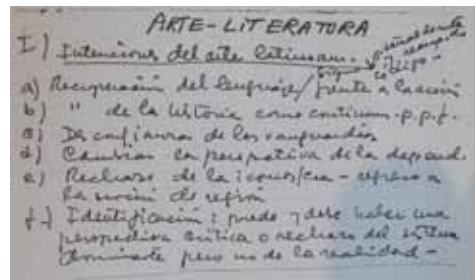 ARTE-LITERATURA
I) Intenciones del arte latinoam.
a) Recuperación del lenguaje / frente a la
b) " de la historia como continuum-p.p.f.
c) Desconfianza de las vanguardias
d) Cambiar la perspectiva de la depend.
e) Rechazo de la - regreso a
la noción de región
f.) Identificación: puede y debe haber una
perspectiva crítica o rechazo del sistema
dominante pero no de la realidad-